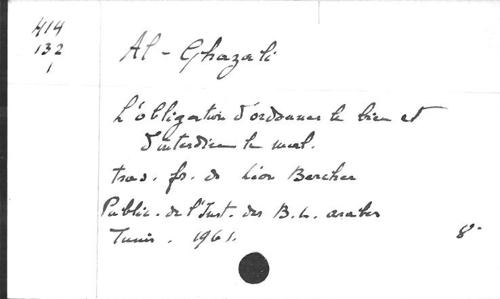 414
132
1
Al-Ghazali
L'obligation d'ordonner le bien et
d'interdire le mal.
trad. fr. de Léon Bercher
Public. de l'Inst. des B. L. arabes
Tunis. 1961. 8°